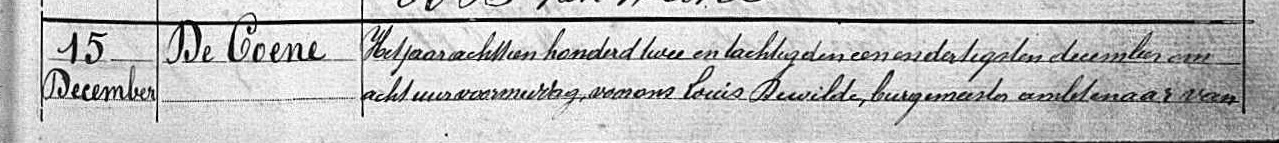 15 De Coene Het jaar achttien honderd twee en tachtig den een en dertigsten december om
December acht uur voormiddag, voor ons Louis Dewilde, burgemeester ambtenaar van